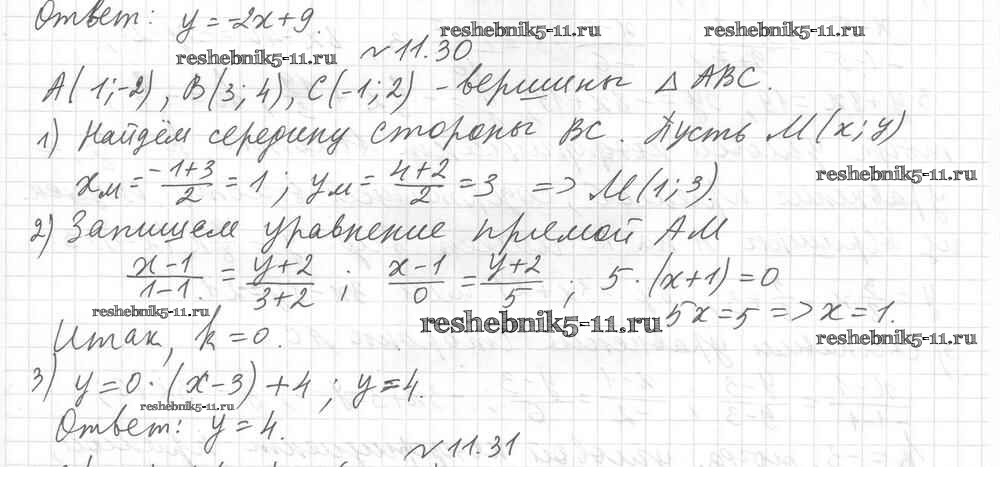 Ответ: y = -2x + 9.
reshebnik5-11.ru
reshebnik5-11.ru
reshebnik5-11.ru
№ 11.30
A(1;-2), B(3;4), C(-1;2) - вершины △ ABC.
1) Найдём середину стороны BC. Пусть M(x;y)
x_M = \frac{-1+3}{2} = 1; y_M = \frac{4+2}{2} = 3 => M(1;3).
reshebnik5-11.ru
2) Запишем уравнение прямой AM
\frac{x-1}{1-1} = \frac{y+2}{3+2}; \frac{x-1}{0} = \frac{y+2}{5}; 5·(x+1)=0
reshebnik5-11.ru
reshebnik5-11.ru
5x=5 => x=1.
Итак, k=0.
reshebnik5-11.ru
3) y=0·(x-3)+4; y=4.
reshebnik5-11.ru
Ответ: y=4.
№ 11.31